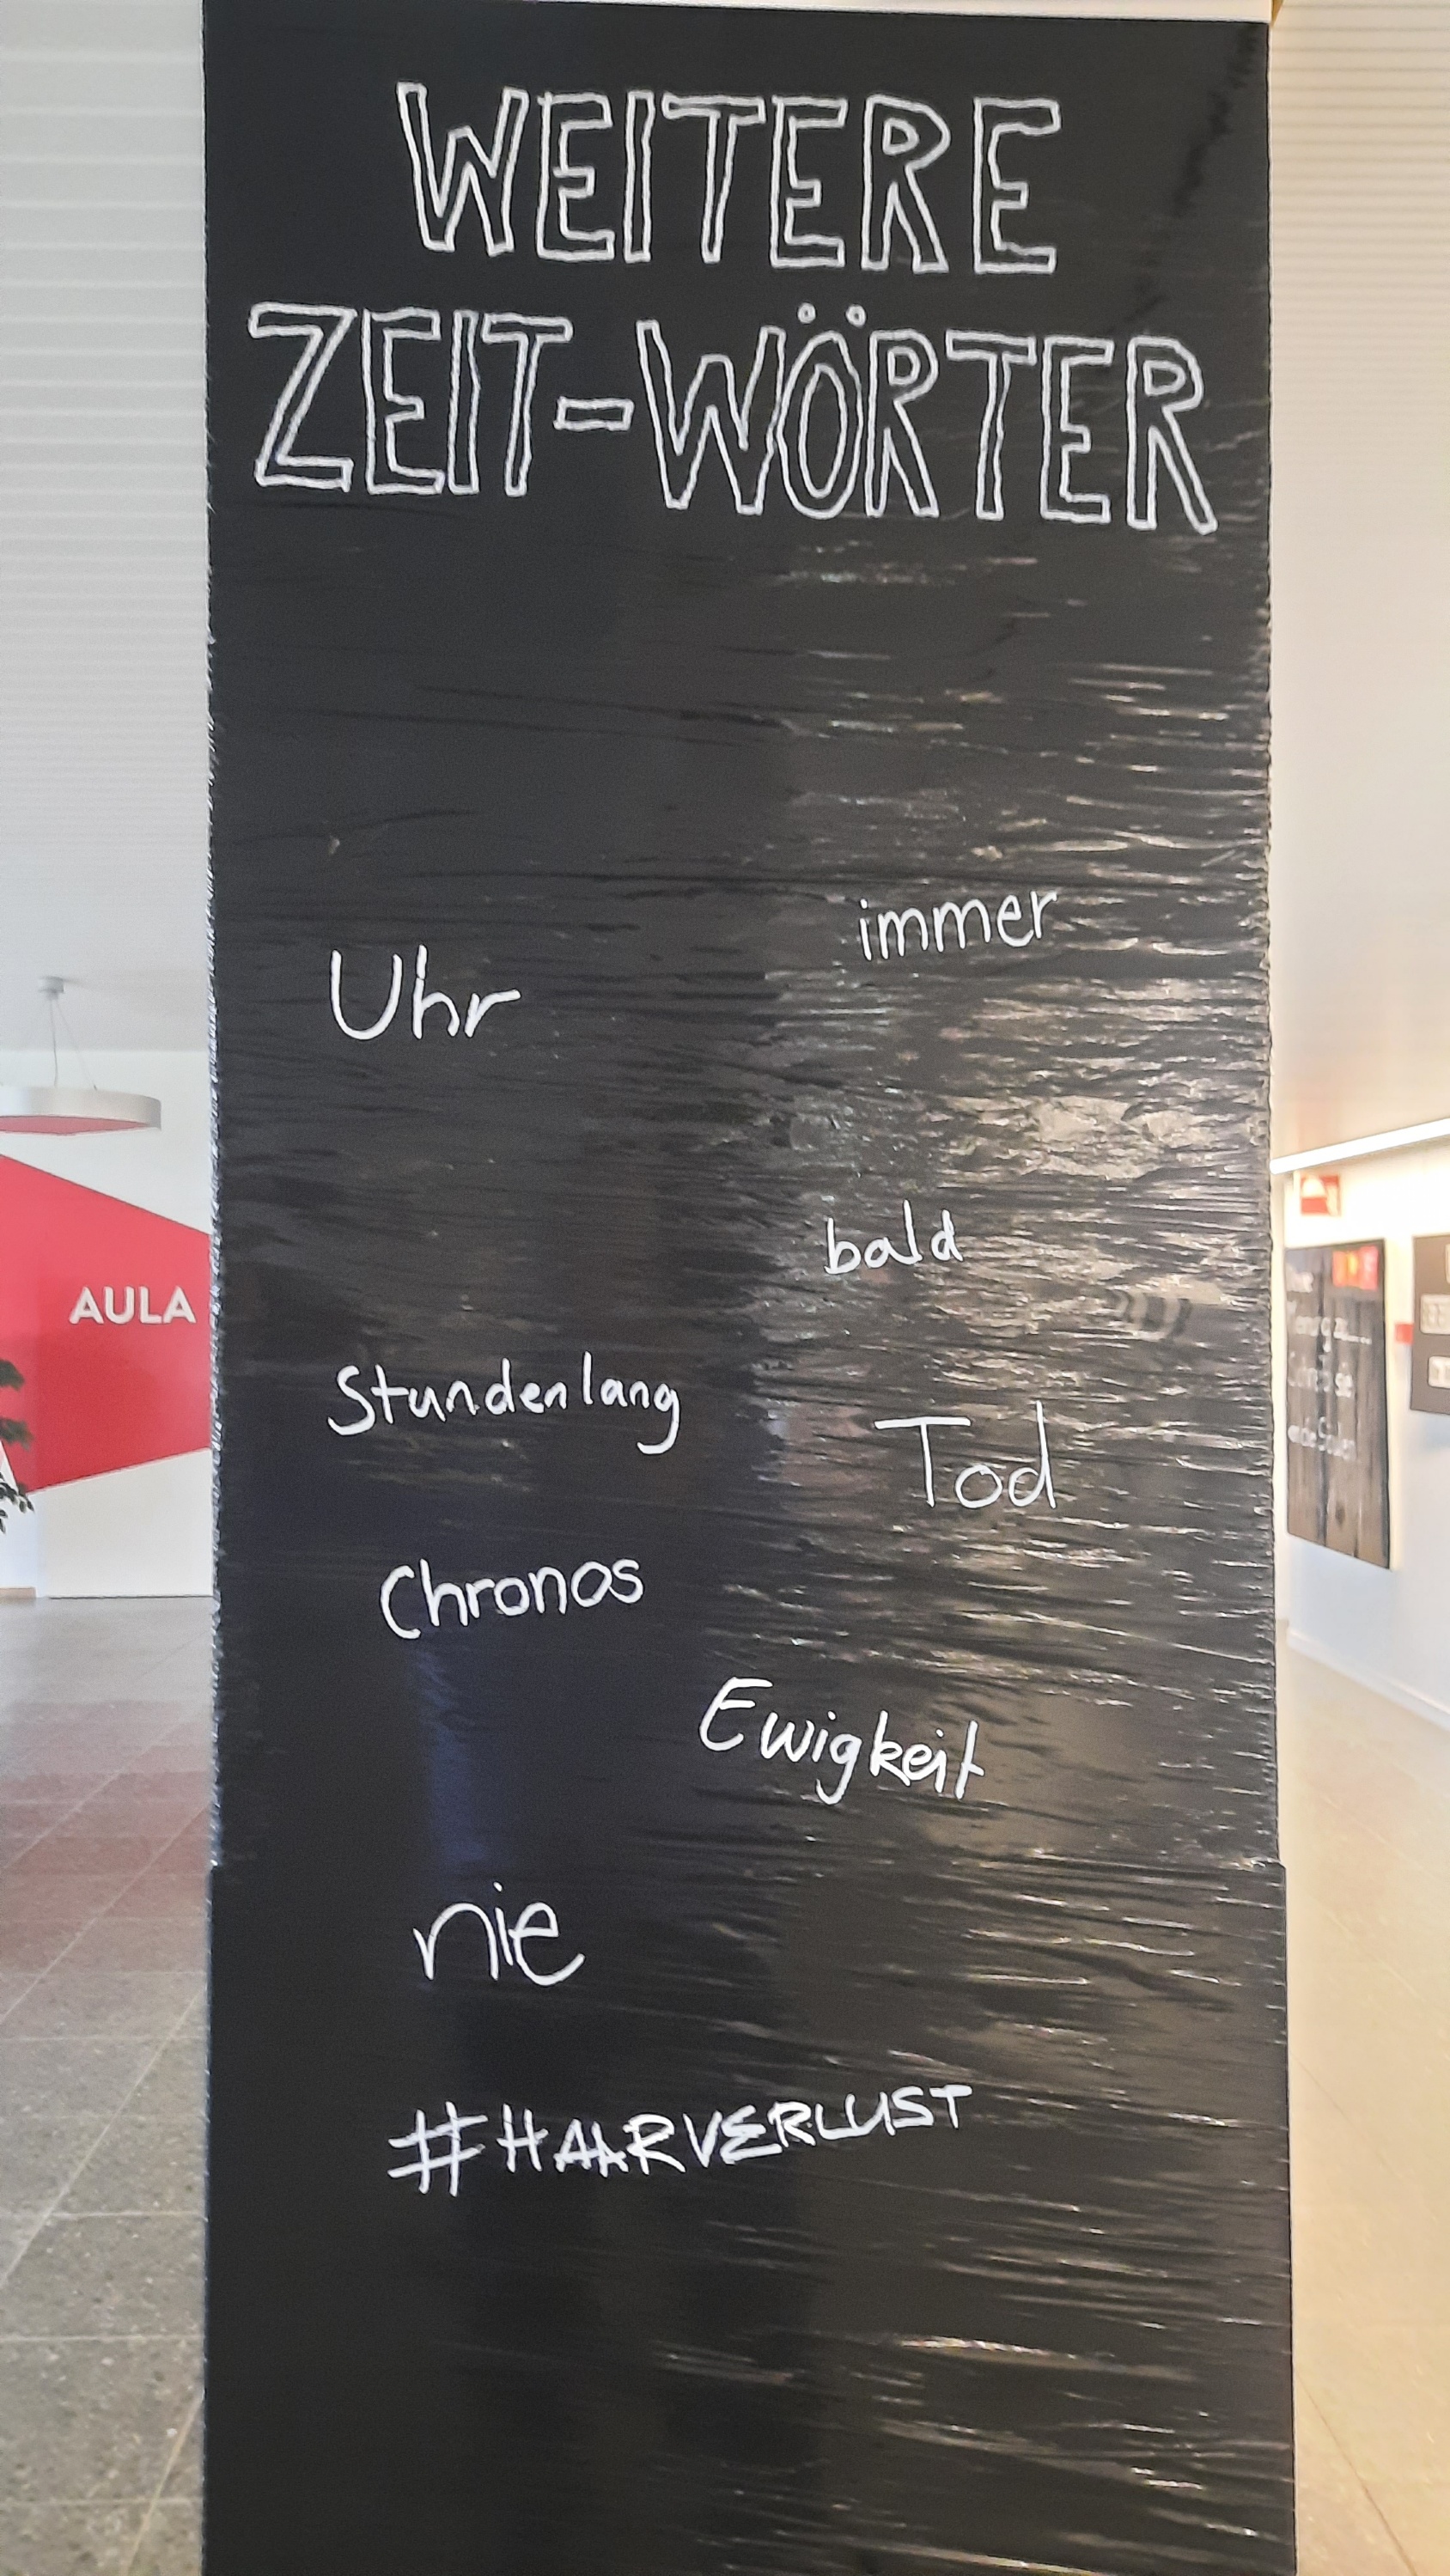 WEITERE
ZEIT-WÖRTER
immer
Uhr
bald
AULA
Stundenlang
Tod
Chronos
Ewigkeit
nie
#HAARVERLUST